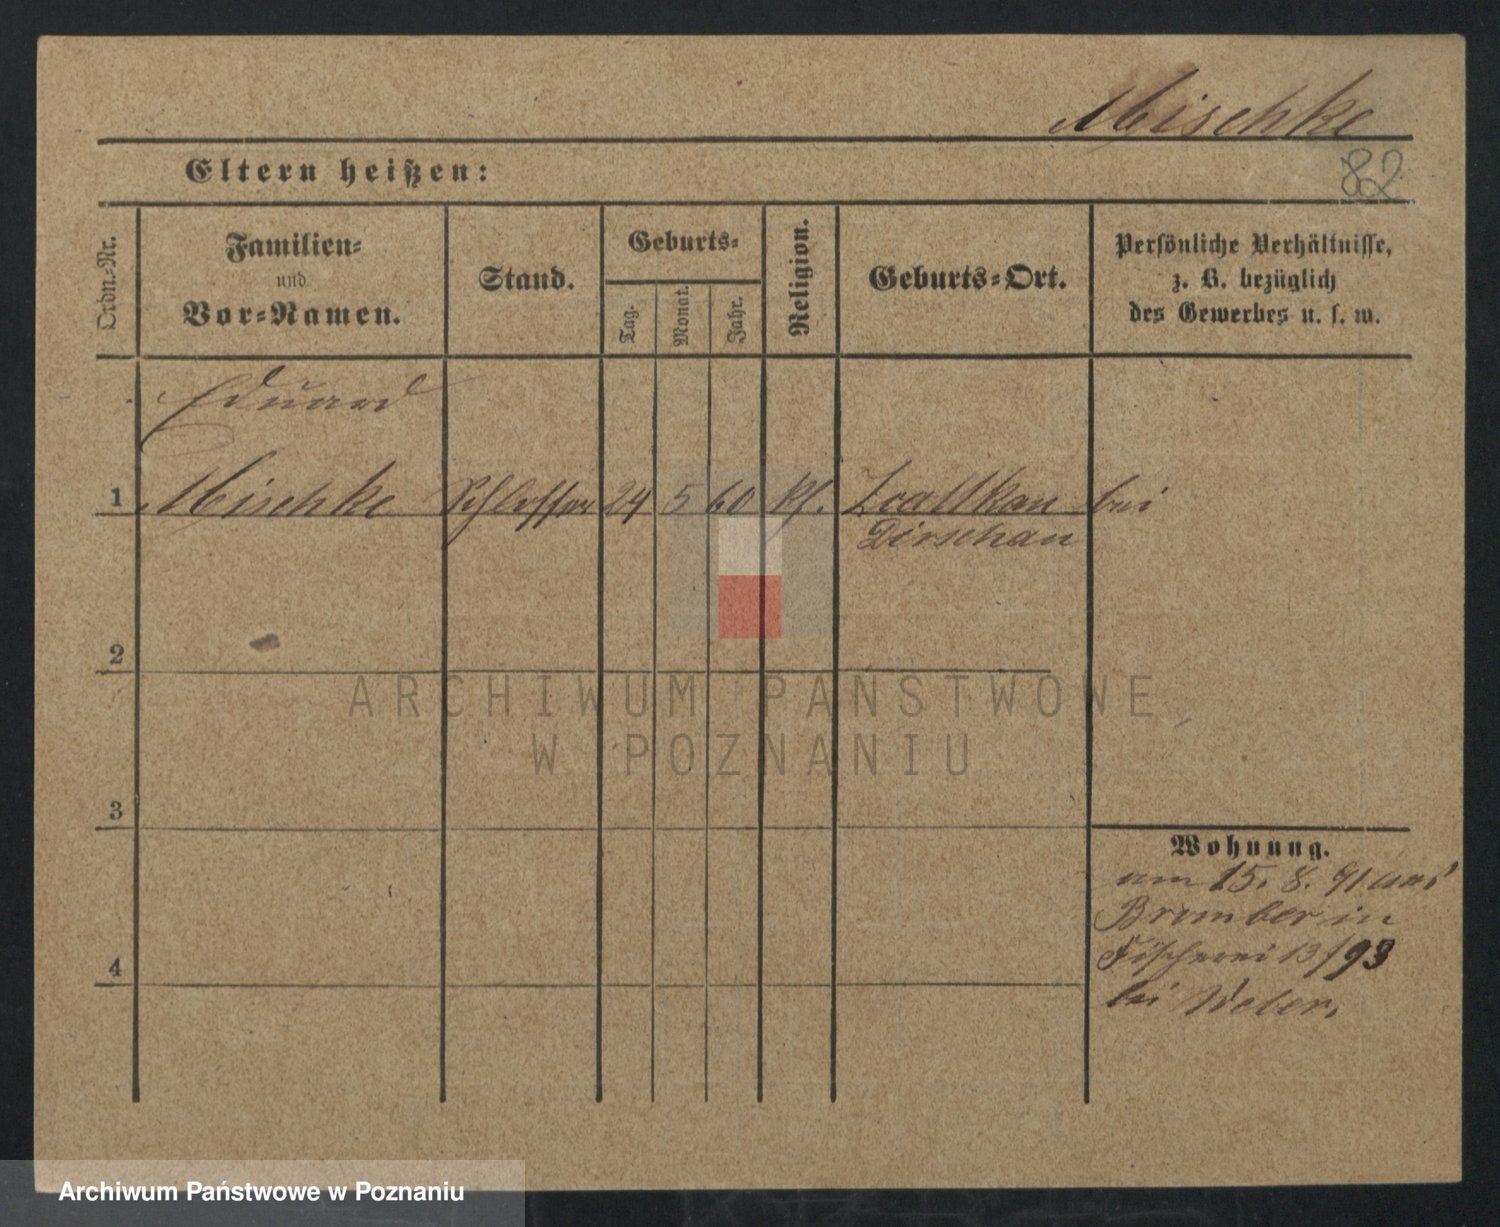 Mischke
82
Eltern heißen:
Ordn.-Nr.
Familien-
und
Vor-Namen.
Stand.
Geburts-
Tag.
Monat.
Jahr.
Religion.
Geburts-Ort.
Persönliche Verhältnisse,
z. B. bezüglich
des Gewerbes u. s. w.
Eduard
1 Mischke Schlosser 24 5 60 kf. bei
Dirschau
2
3
4
Wohnung.
am 15. 8. 91 aus
Bromber in
Fischerei 13/93
bei Weber,
ARCHIWUM PAŃSTWOWE
W POZNANIU
Archiwum Państwowe w Poznaniu